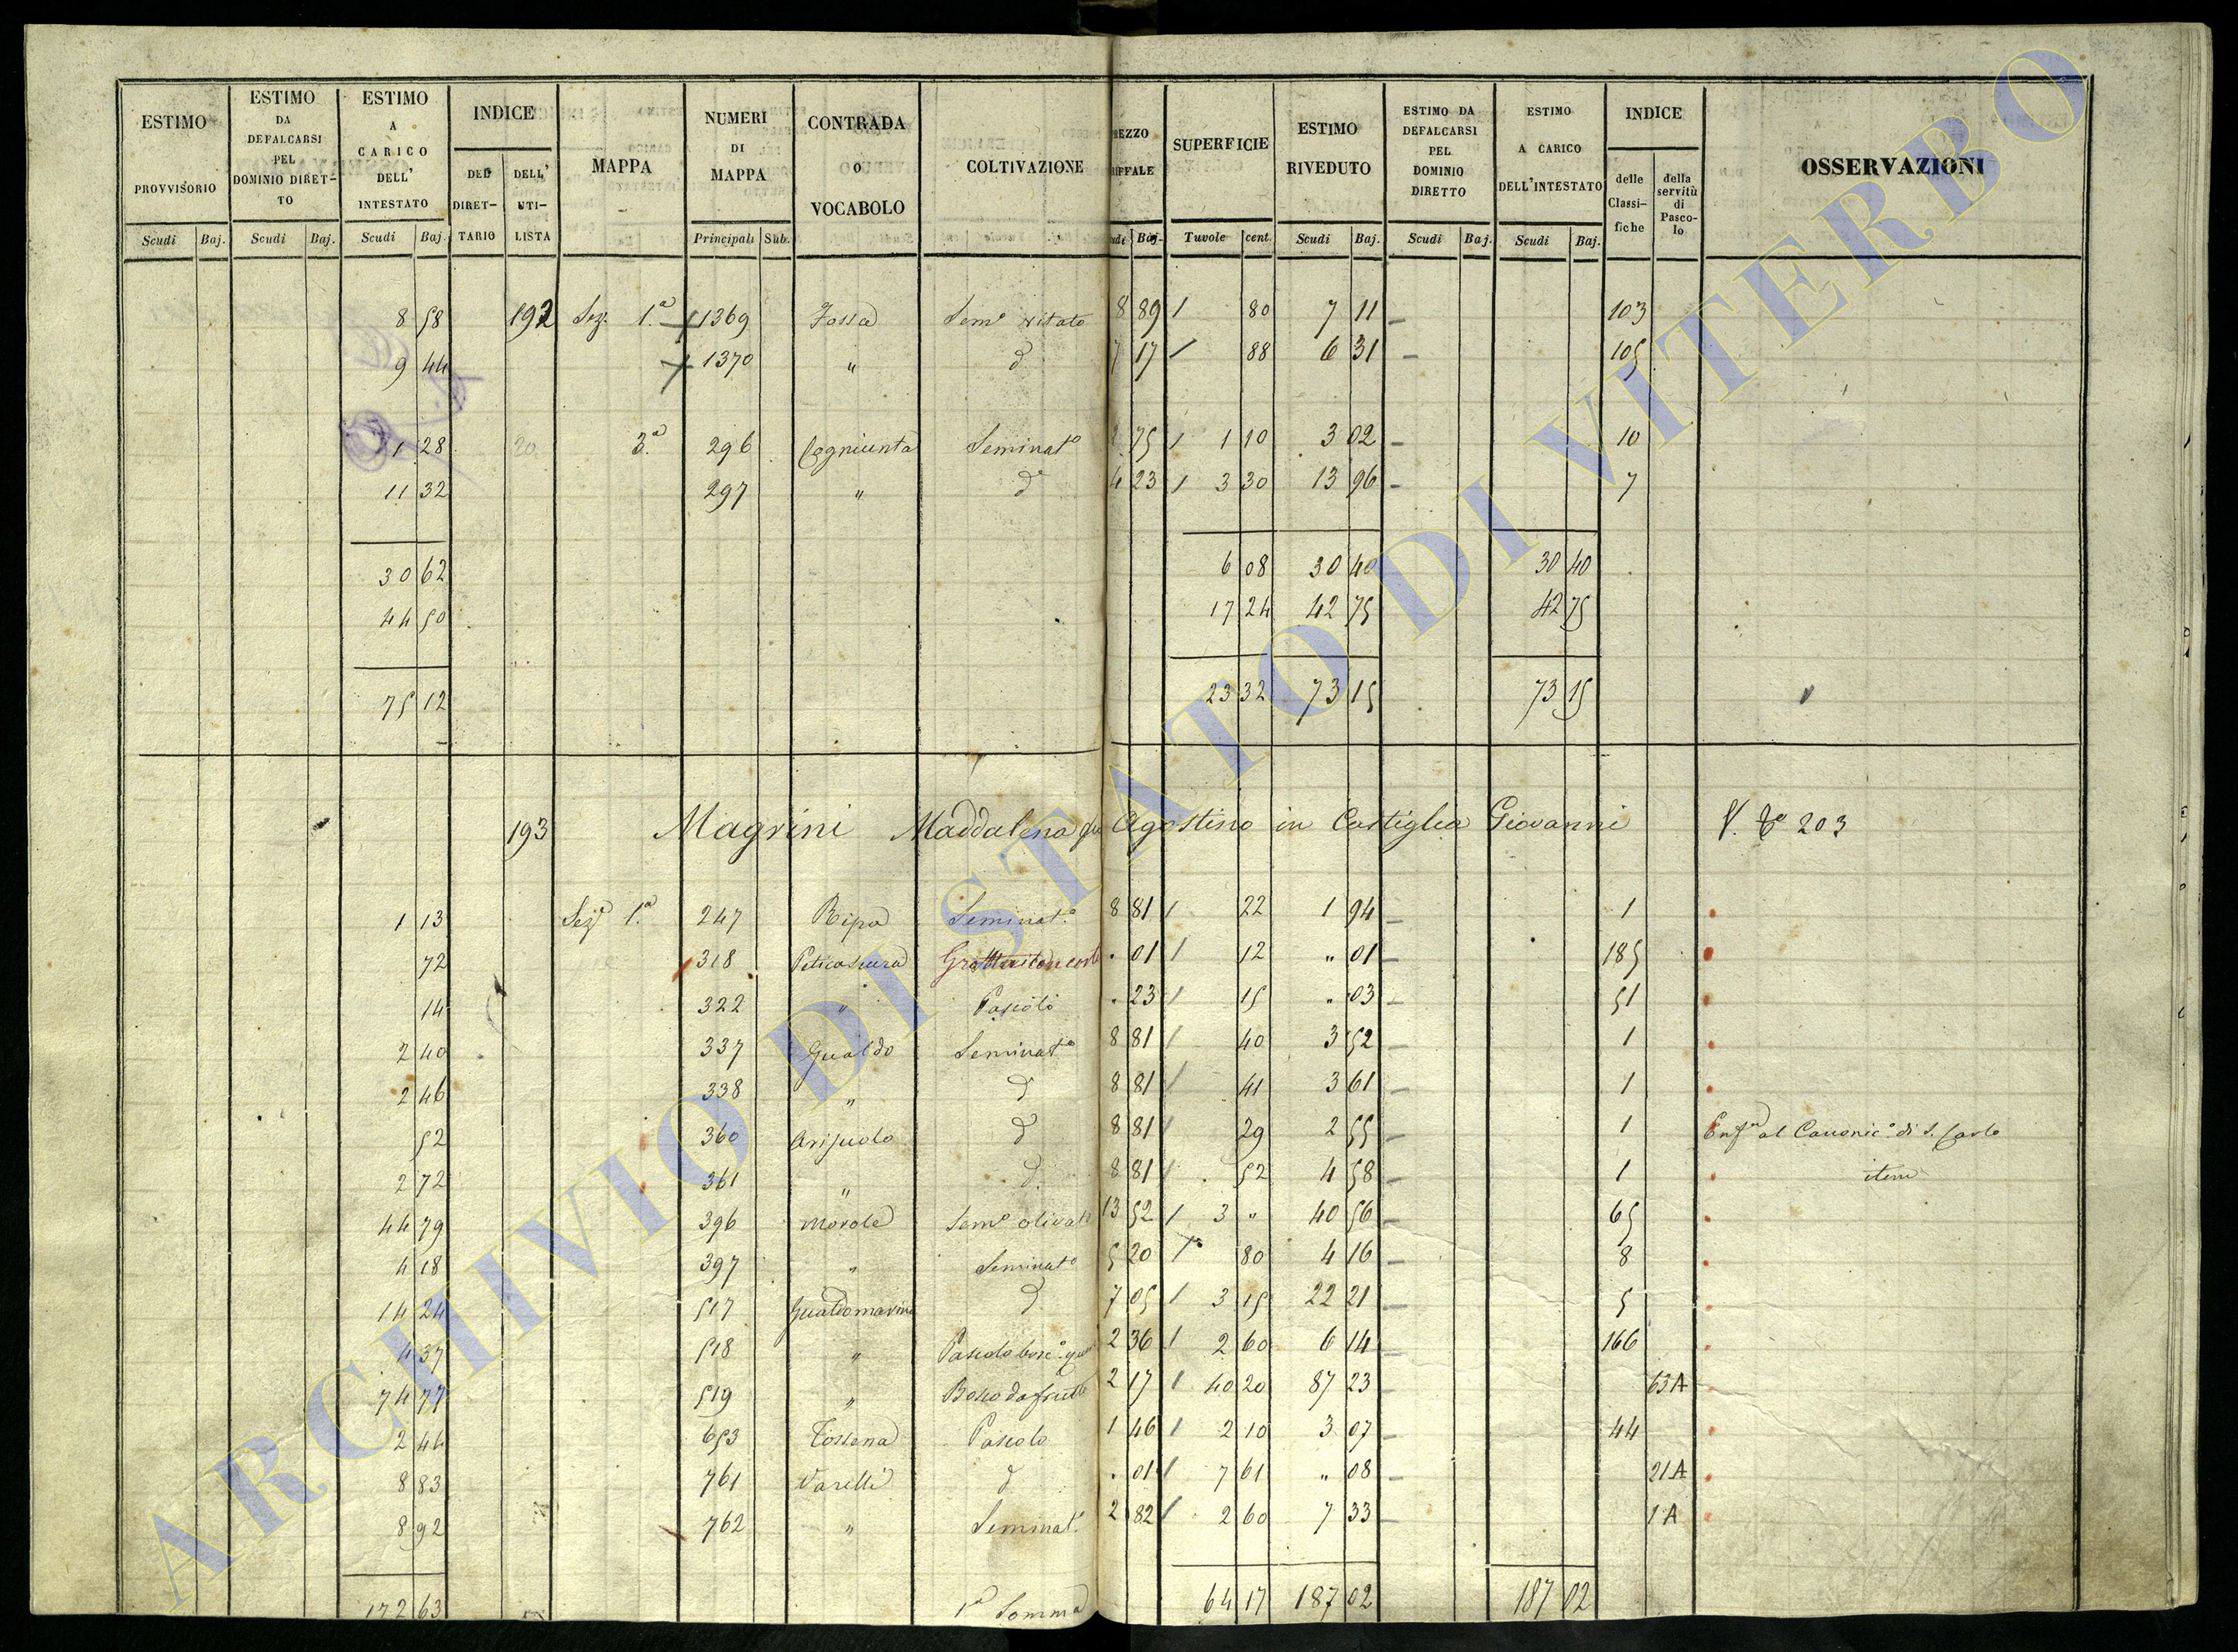 ESTIMO PROVVISORIO
ESTIMO DA DEFALCARSI PEL DOMINIO DIRET-TO
ESTIMO A CARICO DELL' INTESTATO
INDICE
DEL DIRET-TARIO
DELL' UTI-LISTA
MAPPA
NUMERI DI MAPPA
CONTRADA O VOCABOLO
COLTIVAZIONE
REZZO RIFFALE
SUPERFICIE
ESTIMO RIVEDUTO
ESTIMO DA DEFALCARSI PEL DOMINIO DIRETTO
ESTIMO A CARICO DELL'INTESTATO
INDICE
delle Classi-fiche
della servitù di Pasco-lo
OSSERVAZIONI
Scudi Baj. Scudi Baj. Scudi Baj. Principali Sub. udi Baj. Tavole cent. Scudi Baj. Scudi Baj. Scudi Baj.
8 58 192 Sez. 1.ª 1369 Fossa Semo vitato 8 89 / 80 7 11 103
9 44 1370 " do 7 17 / 88 6 31 105
11 28 20 3.ª 296 Cogniunta Seminato 2 75 / 1 10 3 02 10
11 32 297 " do 4 23 / 3 30 13 96 7
30 62 6 08 30 40 30 40
44 50 17 24 42 75 42 75
75 12 23 32 73 15 73 15
193 Magrini Maddalena qu Agostino in Castiglia Giovanni V. No 203
1 13 Sez. 1.ª 247 Ripa Seminato 8 81 / 22 1 94 1
72 318 . 01 / 12 " 01 185
14 322 " Pascolo . 23 / 15 " 03 51
2 40 337 Gualdo Seminato 8 81 / 40 3 52 1
2 46 338 " do 8 81 / 41 3 61 1
52 360 do 8 81 / 29 2 55 1 Enfca al Canonico di S. Carlo
2 72 361 " do 8 81 / 52 4 58 1 item
44 79 396 Morole Semo olivato 13 52 / 3 " 40 56 65
4 18 397 " Seminato 5 20 / 80 4 16 8
14 24 517 Gualdomarino do 7 05 / 3 15 22 21 5
4 37 518 " Pascolo bosco 2 36 / 2 60 6 14 166
74 77 519 " Bosco da frutto 2 17 / 40 20 87 23 63A
2 44 653 Tossena Pascolo 1 46 / 2 10 3 07 44
8 83 761 Varelli do . 01 / 7 61 " 08 21A
8 92 762 " Seminato 2 82 / 2 60 7 33 1A
172 63 1ª Somma 64 17 187 02 187 02
ARCHIVIO DI STATO DI VITERBO